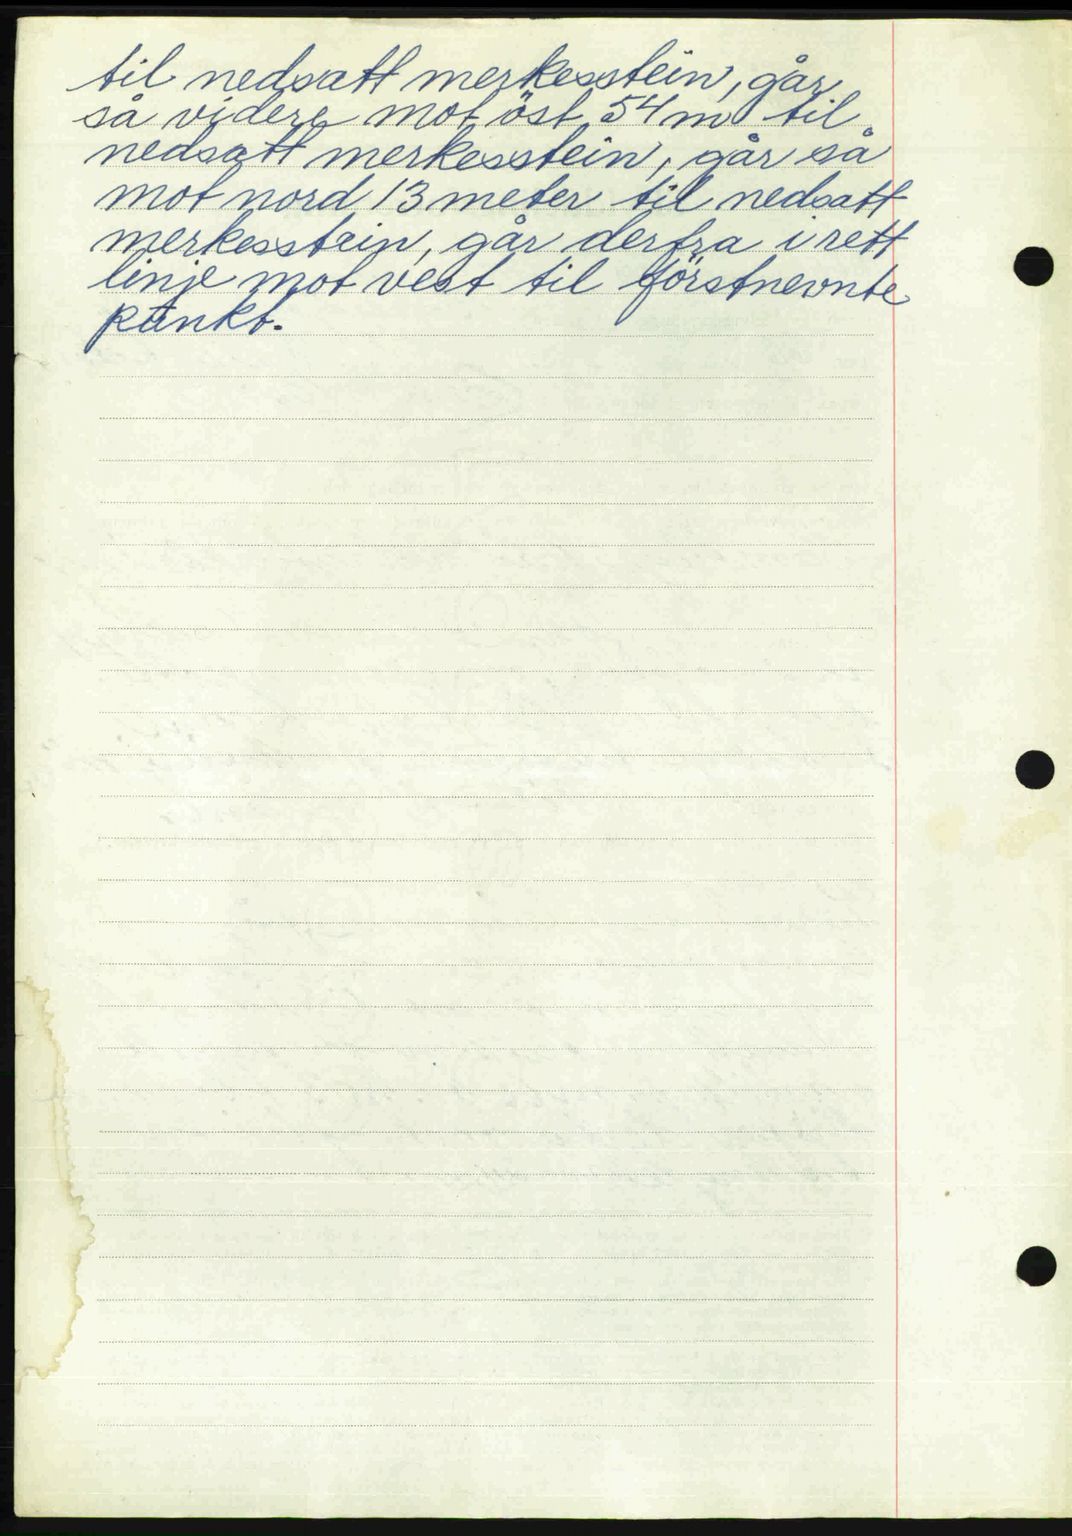 til nedsatt merkesstein, går
så videre mot öst 54 m til
nedsatt merkesstein, går så
mot nord 13 meter til nedsatt
merkesstein, går derfra i rett
linje mot vest til förstnevnte
punkt.